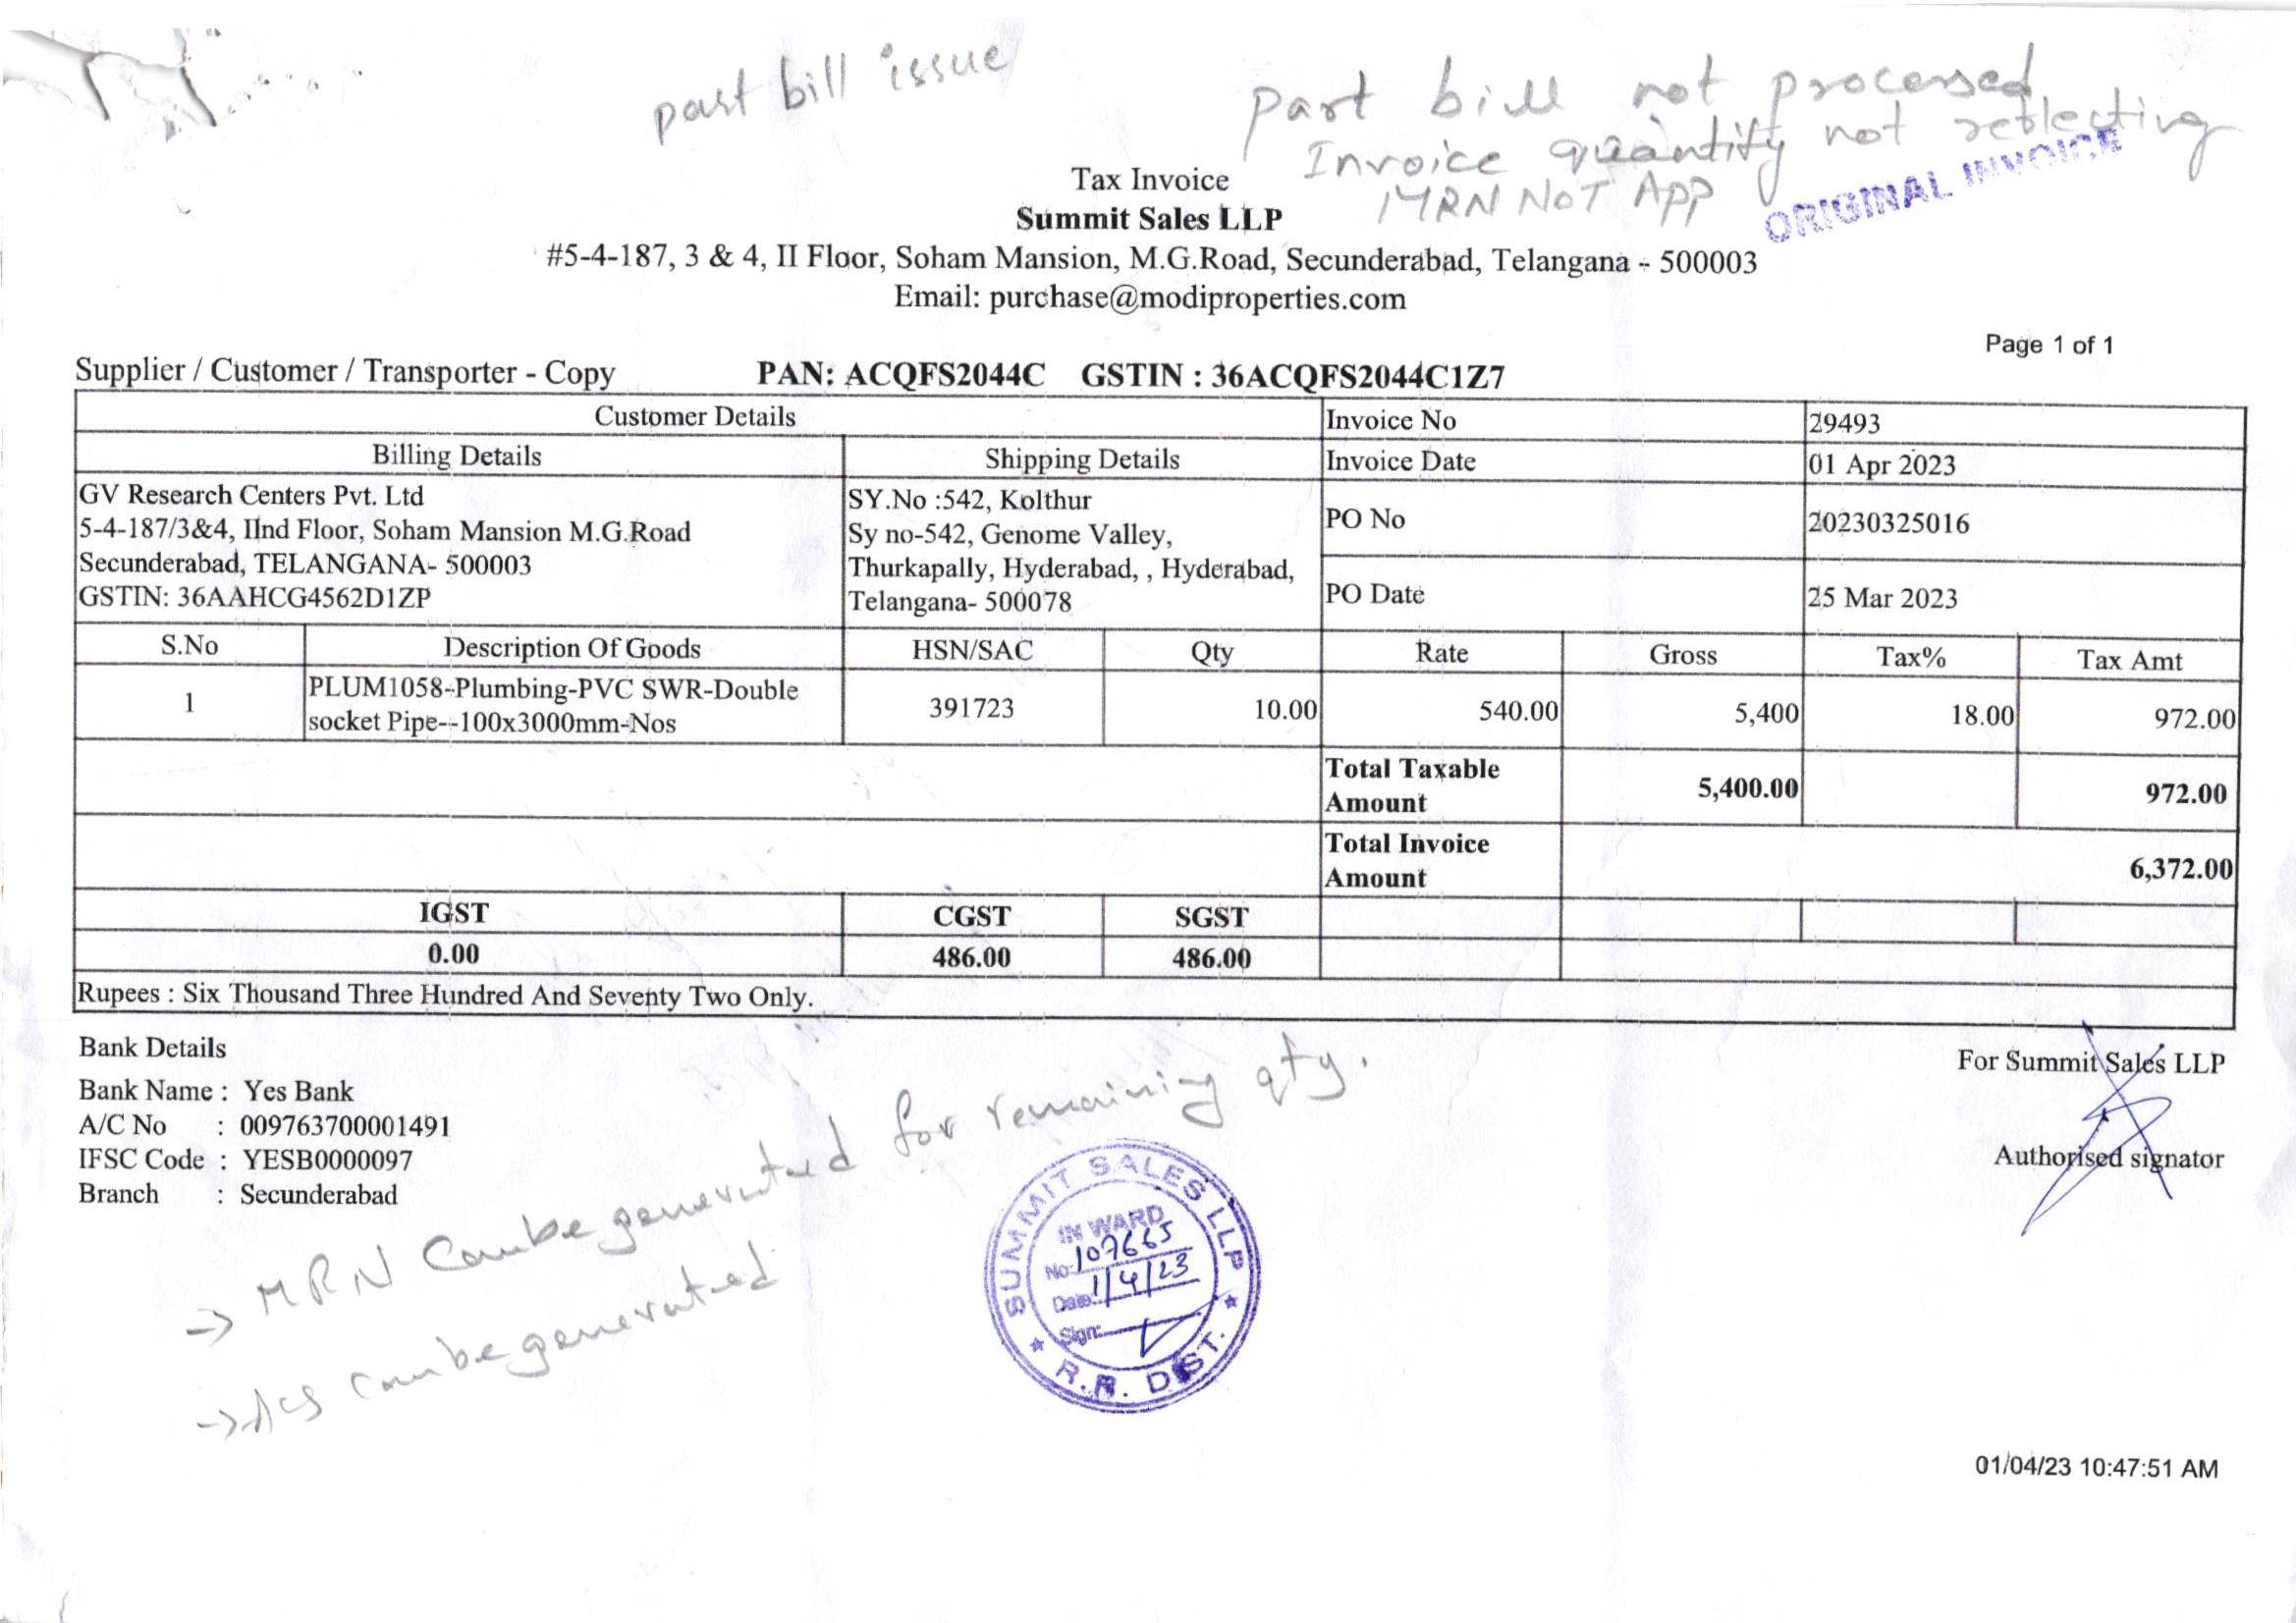 part bill issue
Part bill not processed
Invoice quantity not reflecting
MRN NOT APP
ORIGINAL INVOICE
Tax Invoice
Summit Sales LLP
#5-4-187, 3 & 4, II Floor, Soham Mansion, M.G.Road, Secunderabad, Telangana - 500003
Email: purchase@modiproperties.com
Page 1 of 1
Supplier / Customer / Transporter - Copy PAN: ACQFS2044C GSTIN : 36ACQFS2044C1Z7
Customer Details
Billing Details
Shipping Details
Invoice No 29493
Invoice Date 01 Apr 2023
PO No 20230325016
PO Date 25 Mar 2023
GV Research Centers Pvt. Ltd
5-4-187/3&4, IInd Floor, Soham Mansion M.G.Road
Secunderabad, TELANGANA- 500003
GSTIN: 36AAHCG4562D1ZP
SY.No :542, Kolthur
Sy no-542, Genome Valley,
Thurkapally, Hyderabad, , Hyderabad,
Telangana- 500078
S.No Description Of Goods HSN/SAC Qty Rate Gross Tax% Tax Amt
1 PLUM1058-Plumbing-PVC SWR-Double
socket Pipe--100x3000mm-Nos 391723 10.00 540.00 5,400 18.00 972.00
Total Taxable
Amount 5,400.00 972.00
Total Invoice
Amount 6,372.00
IGST CGST SGST
0.00 486.00 486.00
Rupees : Six Thousand Three Hundred And Seventy Two Only.
Bank Details
Bank Name : Yes Bank
A/C No : 009763700001491
IFSC Code : YESB0000097
Branch : Secunderabad
For Summit Sales LLP
Authorised signator
→ MRN Can be generated for remaining qty.
→ can be generated
SUMMIT SALES LLP
IN WARD
No: 107665
Date: 1/4/23
Sign:
★ R.R. DIST. ★
01/04/23 10:47:51 AM